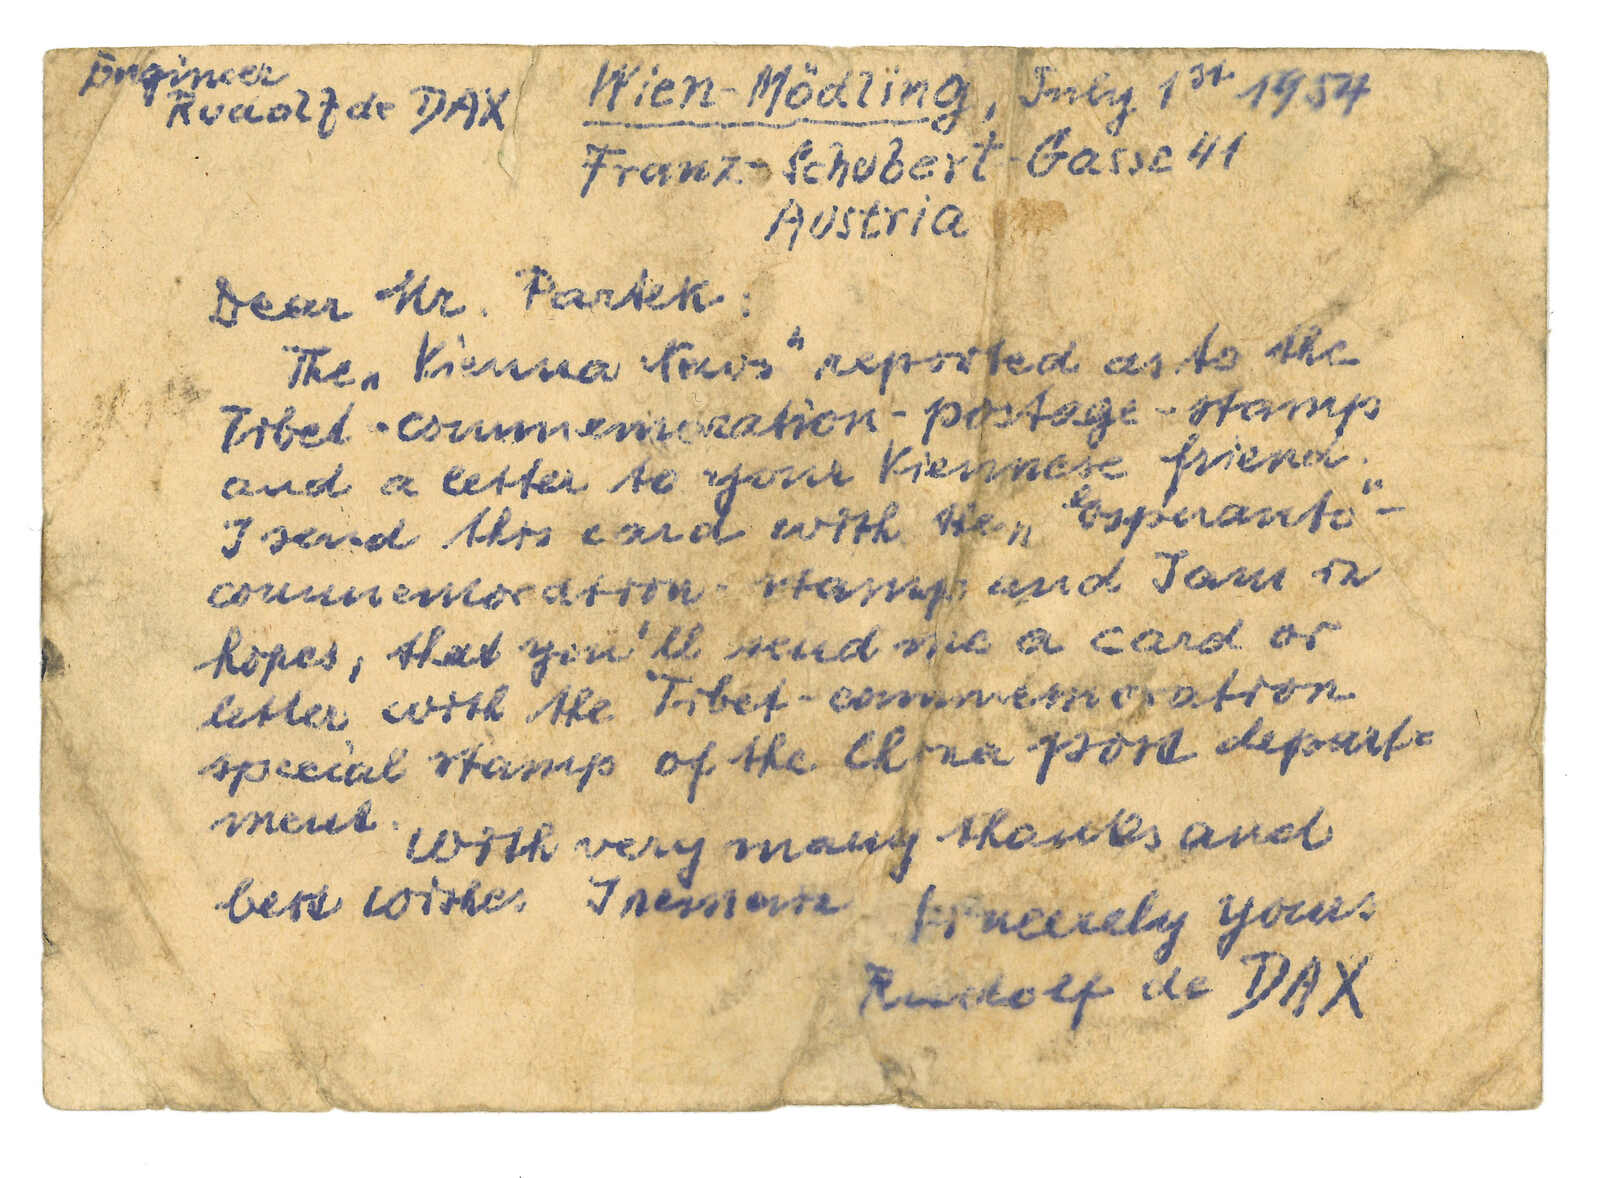 Engineer
Rudolf de DAX
Wien-Mödling, July 1st 1954
Franz-Schubert-Gasse 41
Austria
Dear Mr. Partek:
The „Vienna News" reported as to the
Tibet-commemoration-postage-stamp
and a letter to your Viennese friend.
I send this card with the „Esperanto"-
commemoration-stamp and I am in
hopes, that you'll send me a card or
letter with the Tibet-commemoration
special stamp of the China post depart-
ment.
With very many thanks and
best wishes I remain
sincerely yours
Rudolf de DAX